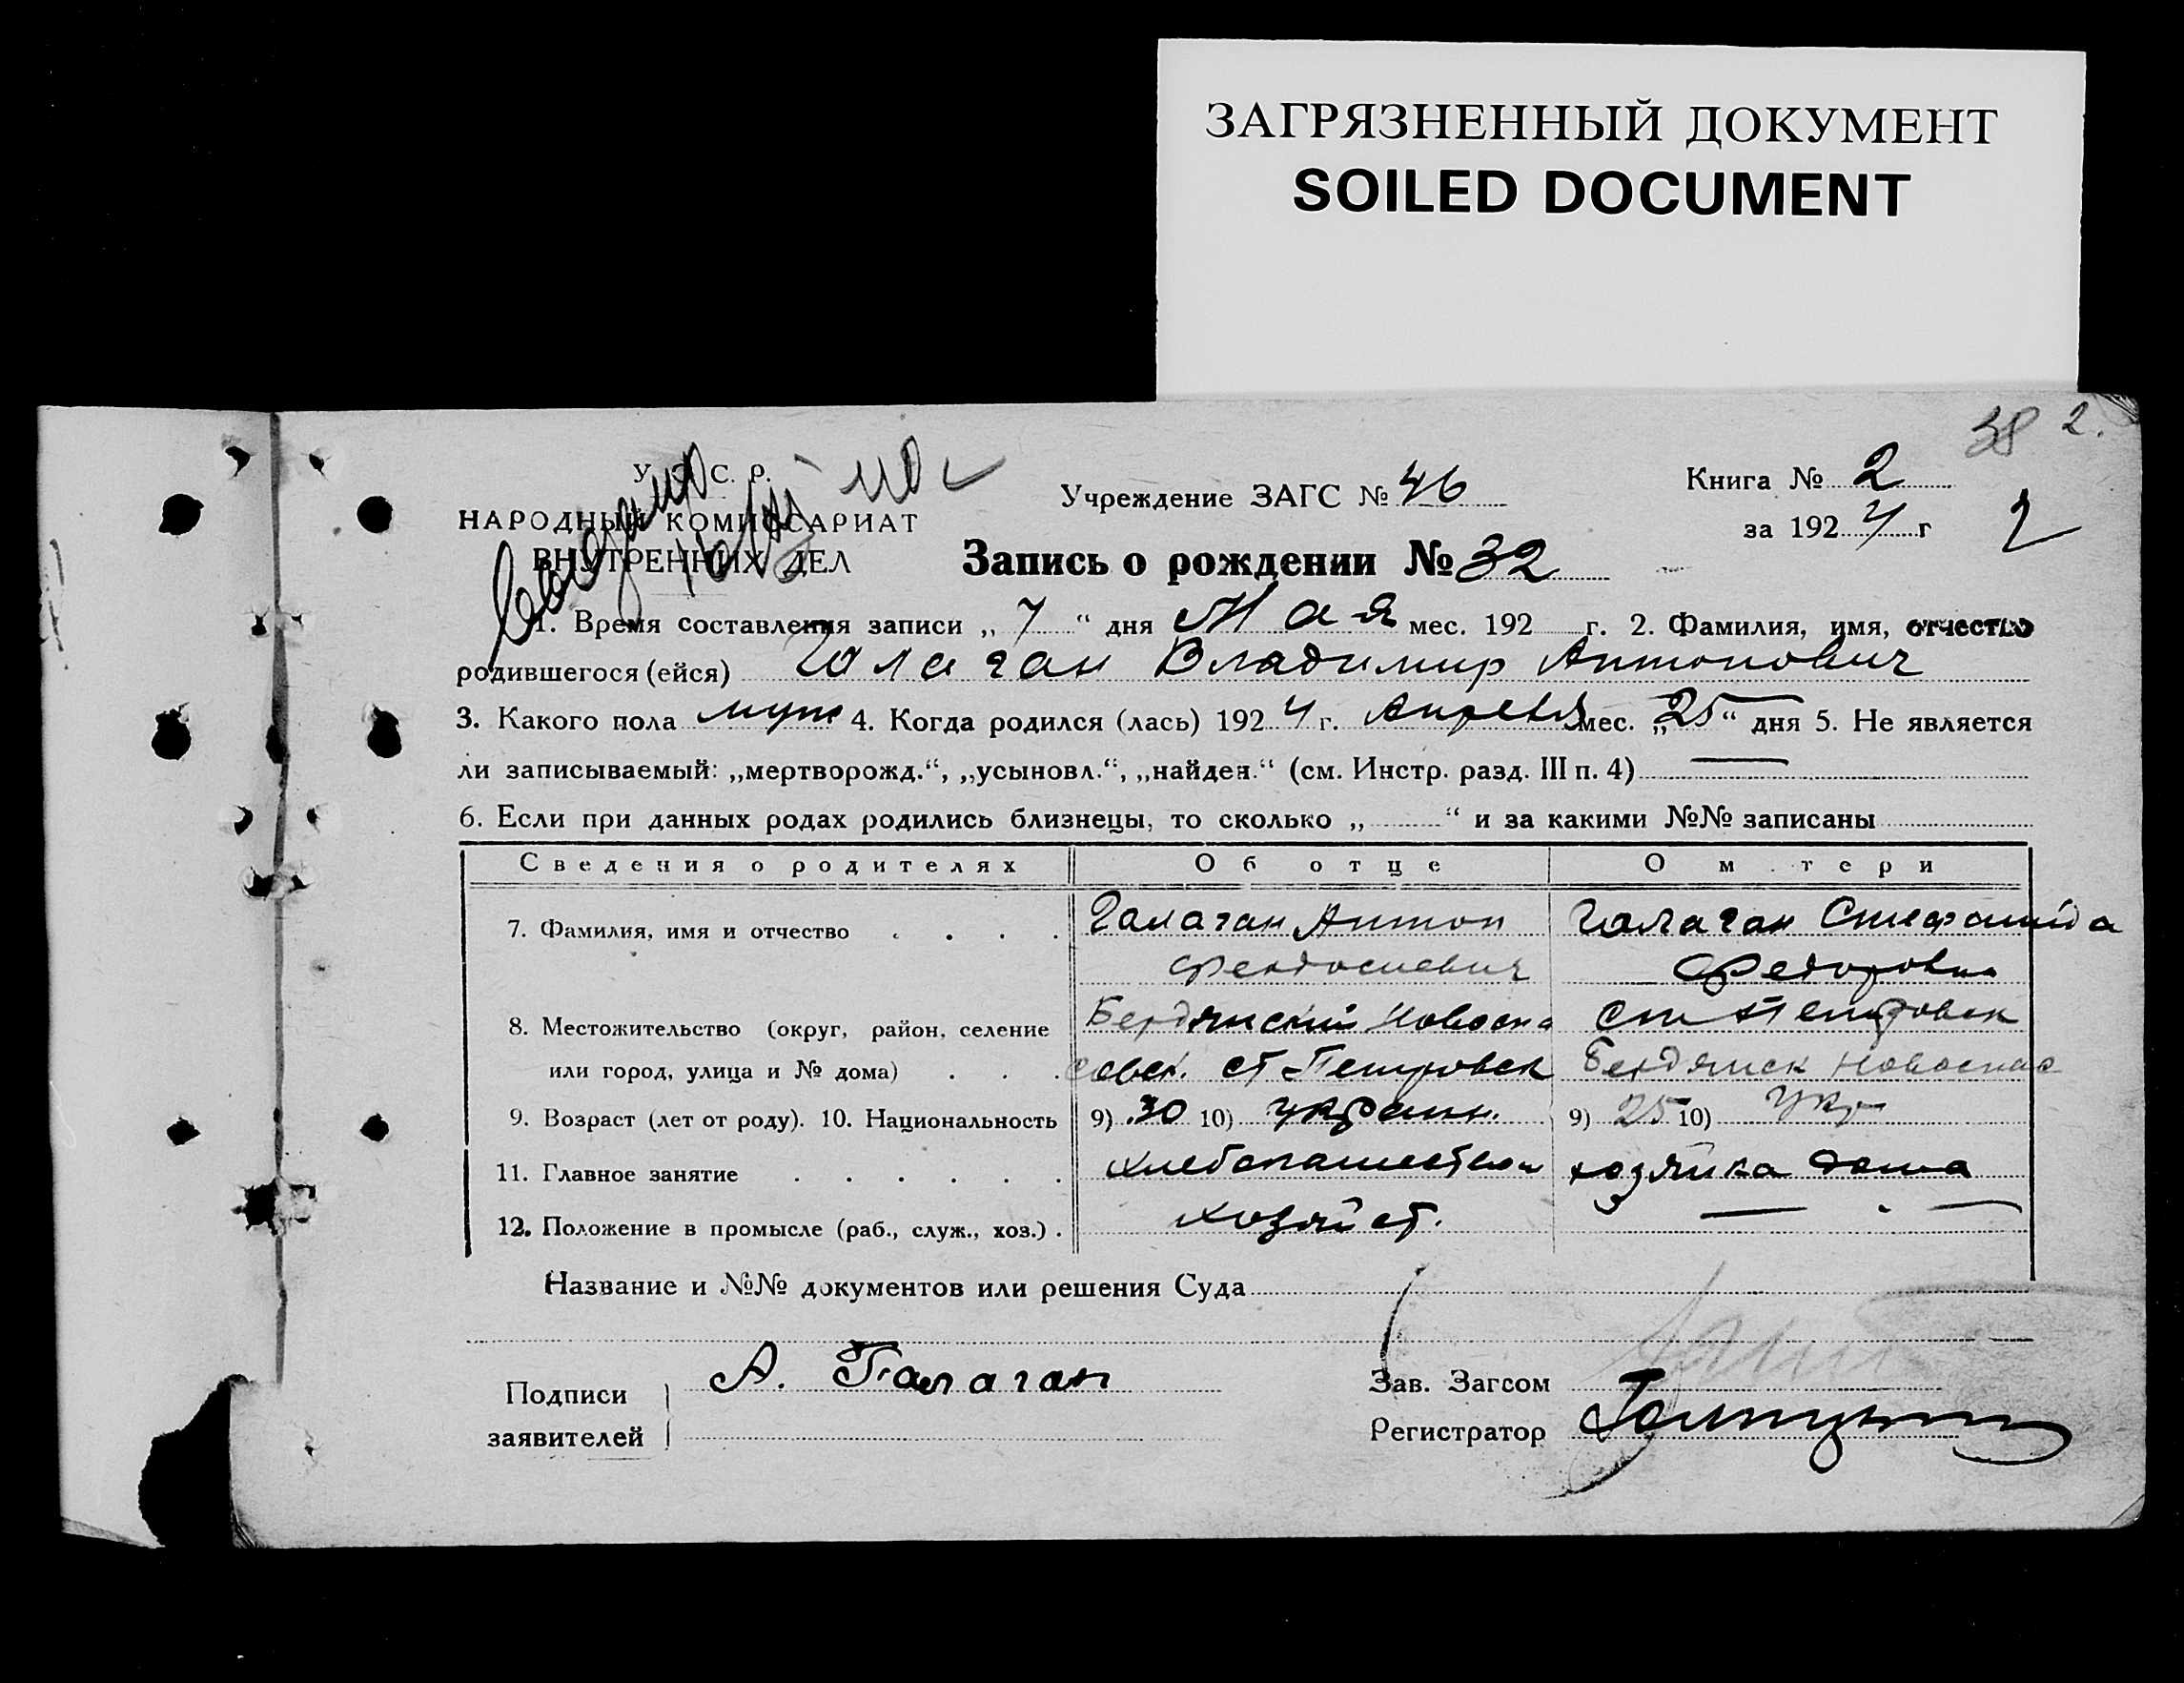 ЗАГРЯЗНЕННЫЙ ДОКУМЕНТ
SOILED DOCUMENT
38 2.
У. С. С. Р.
НАРОДНЫЙ КОМИССАРИАТ
ВНУТРЕННИХ ДЕЛ
Учреждение ЗАГС № 46
Книга № 2
за 1924 г
2
Запись о рождении № 32
1. Время составления записи „ 7 “ дня Мая мес. 192 г. 2. Фамилия, имя, отчество
родившегося (ейся) Галаган Владимир Антонович
3. Какого пола муж. 4. Когда родился (лась) 1924 г. Апреля мес. „25“ дня 5. Не является
ли записываемый: „мертворожд.“, „усыновл.“, „найден.“ (см. Инстр. разд. III п. 4) —
6. Если при данных родах родились близнецы, то сколько „ “ и за какими №№ записаны
Сведения о родителях Об отце О м тери
7. Фамилия, имя и отчество . . . . Галаган Антон Галаган Стефанида
Феодосиевич Федоровна
8. Местожительство (округ, район, селение Бердянский Новоспа Ст Петровск
или город, улица и № дома) . . . совск. ст Петровск Бердянск Новоспас
9. Возраст (лет от роду). 10. Национальность 9) 30 10) украин. 9) 25 10) Укр
11. Главное занятие . . . . . . хлебопашеством хозяйка дома
12. Положение в промысле (раб., служ., хоз.) . хозяйст. —
Название и №№ документов или решения Суда
Подписи
заявителей
А. Галаган
Зав. Загсом
Регистратор